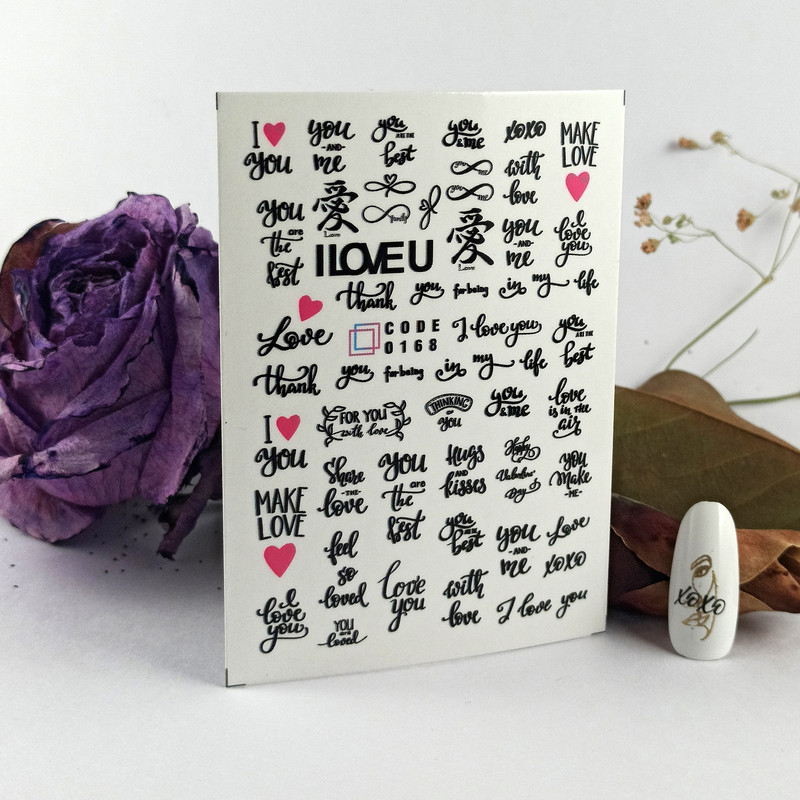 I ♥ You
you -AND- me
you ARE THE best
you & me
xoxo
MAKE LOVE
with love
You are the Best
愛
Love
family
愛
Love
you -AND- me
I love you
I LOVE U
thank you for being in my life
Love
CODE 0168
I love you
you ARE THE best
thank you for being in my life
I ♥ You
FOR YOU with love
THINKING OF You
you & me
love is in THE air
MAKE LOVE
Share -THE- love
You are the Best
Hugs AND kisses
Happy Valentine' Day
you Make -ME-
feel so loved
you ARE THE best
you -AND- me
Love
xoxo
I love you
YOU are loved
love you
with love
I love you
xoxo